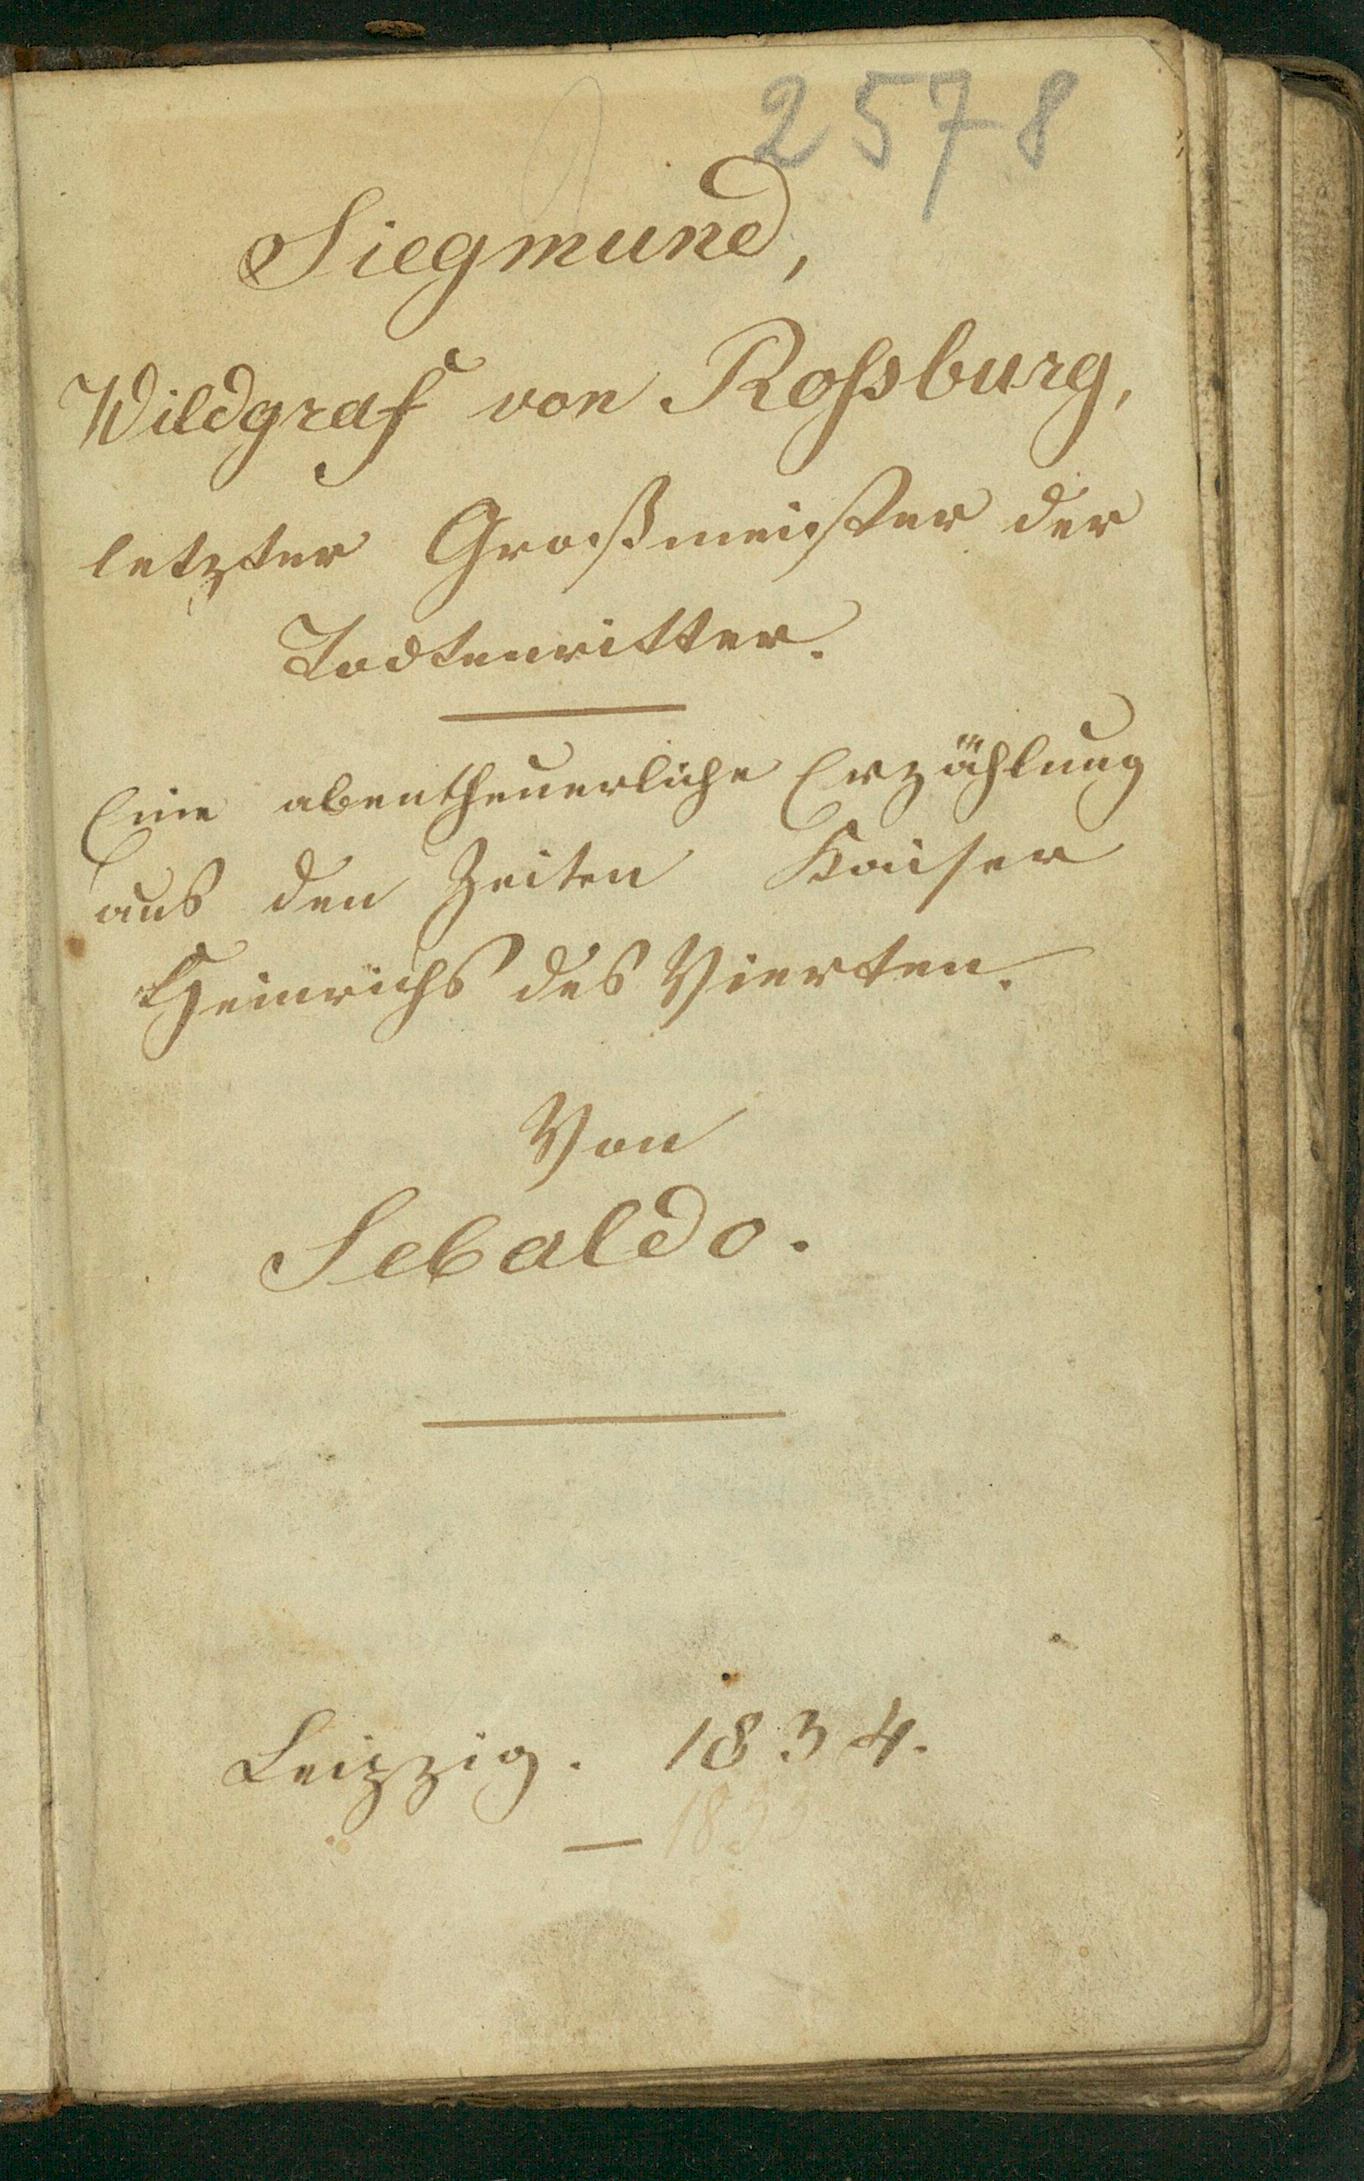 2578
Siegmund,
Wildgraf von Roßburg,
letzter Großmeister der
Todtenritter.
Eine abentheuerliche Erzählung
aus den Zeiten Kaiser
Heinrichs des Vierten.
Von
Sebaldo.
Leipzig. 1834.